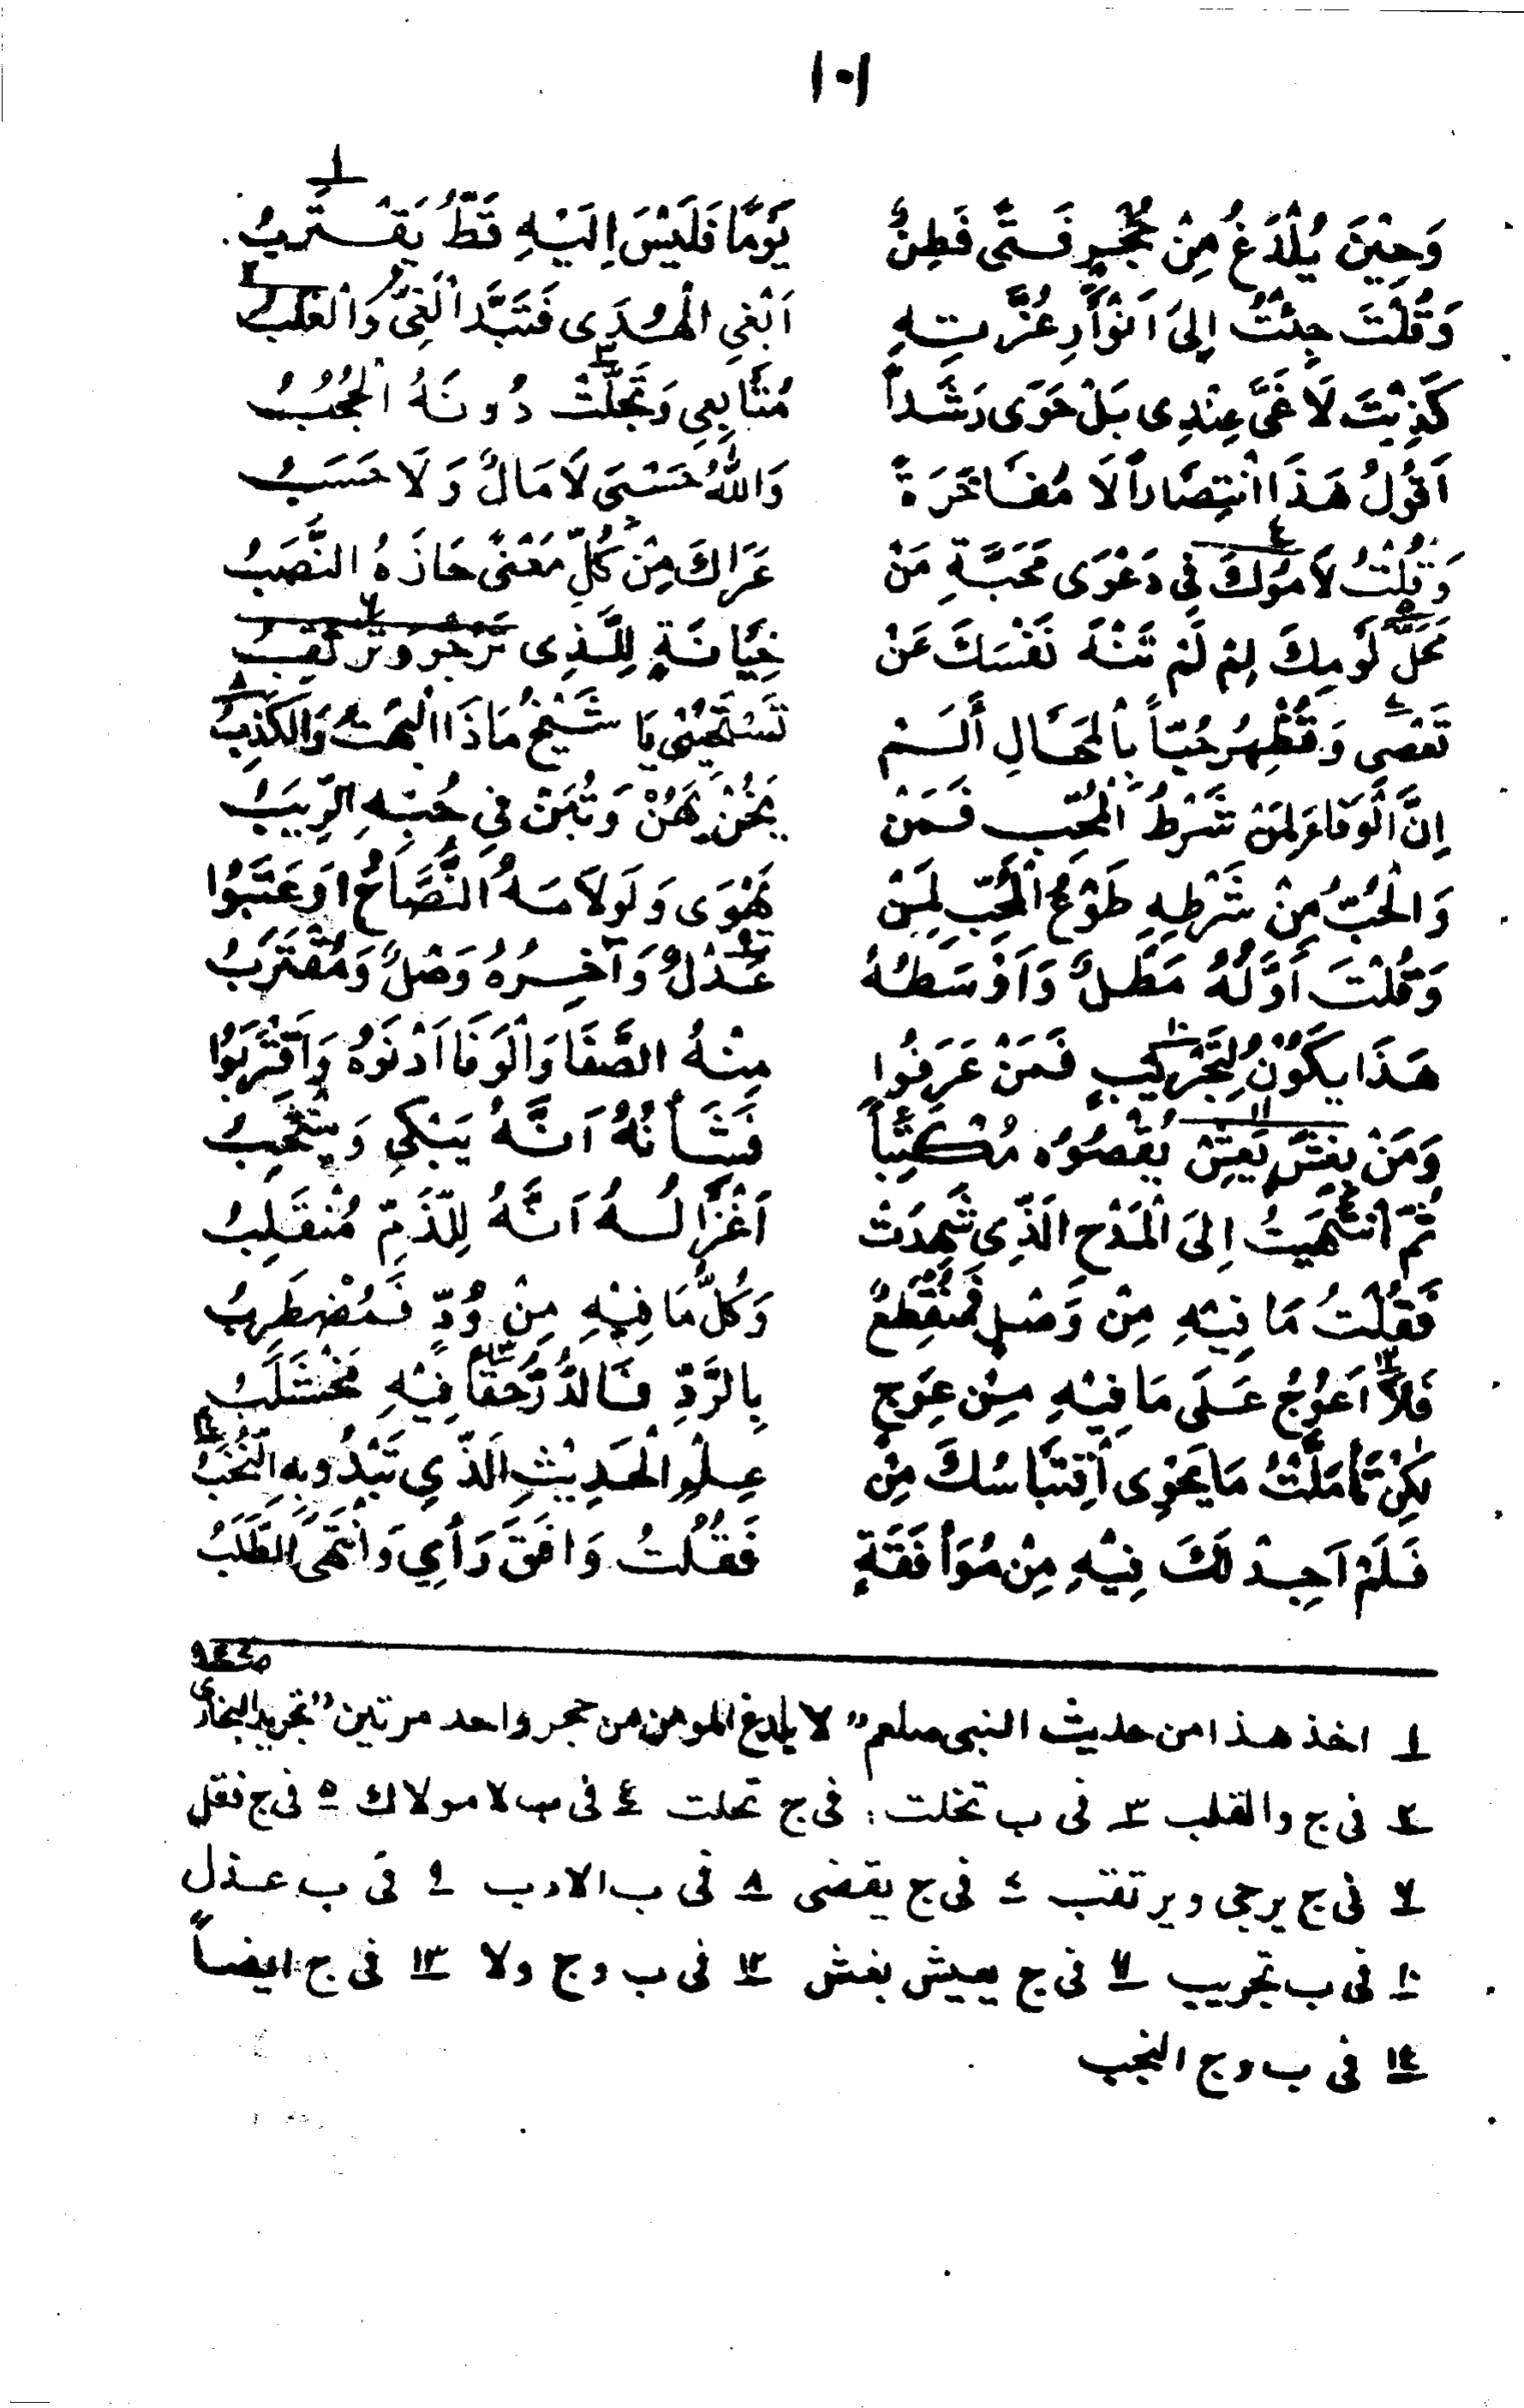 ١٠١
وَحِيْنَ يُلْدَغُ مِنْ جُحْرٍ فَتًى فَطِنٌ يَوْمًا فَلَيْسَ اِلَيْهِ قَطُّ يَقْتَرِبُ ١
وَقُلْتَ جِئْتُ اِلىَ اَنْوَارِ عُزَّتِهِ اَبْغِي الْهُدَى فَتَبَدَّ الْغَىُّ وَالْغَلَبُ ٢
كَذِبْتَ لَا غَىَّ عِنْدِى بَلْ حَوَى رَشَداً مُتَابِعِي وَتَجَلَّتْ ٣ دُونَهُ الْحُجُبُ
اَقُولُ هَذَا انْتِصَاراً لَا مُفَاخَرَةً وَاللهُ حَسْبِى لَا مَالٌ وَلَا حَسَبُ
وَقُلْتُ لَامُوكَ ٤ فِي دَعْوَى مَحَبَّةِ مَنْ عَرَاكَ مِنْ كُلِّ مَعْنىً حَازَهُ النَّصَبُ
مَحَلَّ ٥ لَومِكَ لِمْ لَمْ تَنْهَ نَفْسَكَ عَنْ خِيَانَةٍ لِلَّذِى تَرْجُو وَتَرْتَقِبُ ٦
تَعْصِى ٧ وَتُظْهِرُ حُبّاً بِالْمَحَالِ أَلَمْ تَسْتَحْيِنِى يَا شَيْخُ مَاذَا الْبَهْتُ وَالكَذِبُ ٨
اِنَّ الْوَفَاءَ لَمِنْ شَرْطُ الْمُحِبِّ فَمَنْ يَخُنْ يَهُنْ وَتُبَنْ فِي حُبِّهِ الرِّيَبُ
وَالْحُبُّ مِنْ شَرْطِهِ طَوْعُ الْمُحِبِّ لِمَنْ يَهْوَى وَلَو لَامَهُ النُّصَّاحُ اَوعَتَبُوْا
وَقُلْتَ أَوَّلُهُ مَطْلٌ وَاَوْسَطُهُ عَذْلٌ ٩ وَآخِرُهُ وَصْلٌ وَمُقْتَرَبُ
هَذَا يَكُوْنُ لِتَجْرِيْبٍ ١٠ فَمَنْ عَرَفُوا مِنْهُ الصَّفَا وَالْوَفَا اَدْنَوْهُ وَاقْتَرَبُوْا
وَمَنْ بِغِشٍّ يَعِشْ ١١ يُقْصُوْهُ مُكْتَئِباً فَشَأْنُهُ اَنَّهُ يَبْكِي وَيَنْتَحِبُ
ثُمَّ انْتَهَيْتُ اِلىَ الْمَدْحِ الَّذِي شَهِدَتْ اَغْزَالُهُ اَنَّهُ لِلذَّمِّ مُنْقَلِبُ
فَقُلْتُ مَا فِيْهِ مِنْ وَصْلٍ فَمُنْقَطِعٌ وَكُلُّ مَا فِيْهِ مِنْ وُدٍّ فَمُضْطَرِبُ
فَلَا ١٢ اَعُوْجُ عَلَى مَا فِيْهِ مِنْ عِوَجٍ بِالرَّدِّ فَالدُّرُّ حَقًّا ١٣ فِيْهِ مَخْشَلَبُ
لكِنْ تَأَمَّلْتُ مَا يَحْوِى اقْتِبَاسُكَ مِنْ عِلْمِ الْحَدِيْثِ الَّذِي تَبْدُو بِهِ النُّخَبُ ١٤
فَلَمْ اَجِدْ لَكَ فِيْهِ مِنْ مُوَافَقَةٍ فَقُلْتُ وَافَقَ رَأْيِ وَانْتَهَى الطَّلَبُ
١ اخذ هذا من حديث النبى صلعم "لا يلدغ المومن من جحر واحد مرتين" تجريد البخارى
٢ فى ج والقلب ٣ فى ب تخلت، فى ج تحلت ٤ فى ب لا مولاك ٥ فى ج فقل
٦ فى ج يرجى ويرتقب ٧ فى ج يقضى ٨ فى ب الادب ٩ فى ب عذل
١٠ فى ب تجريب ١١ فى ج يعيش بغش ١٢ فى ب و ج ولا ١٣ فى ج ايضاً
١٤ فى ب و ج النجب